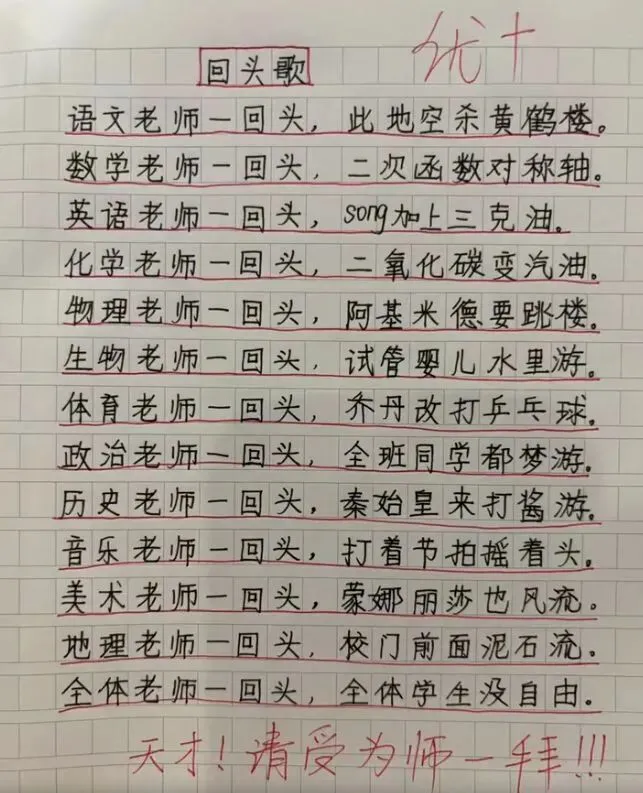 优+
回头歌
语文老师一回头，此地空杀黄鹤楼。
数学老师一回头，二次函数对称轴。
英语老师一回头，song加上三克油。
化学老师一回头，二氧化碳变汽油。
物理老师一回头，阿基米德要跳楼。
生物老师一回头，试管婴儿水里游。
体育老师一回头，乔丹改打乒乓球。
政治老师一回头，全班同学都梦游。
历史老师一回头，秦始皇来打酱游。
音乐老师一回头，打着节拍摇着头。
美术老师一回头，蒙娜丽莎也风流。
地理老师一回头，校门前面泥石流。
全体老师一回头，全体学生没自由。
天才！请受为师一拜!!!